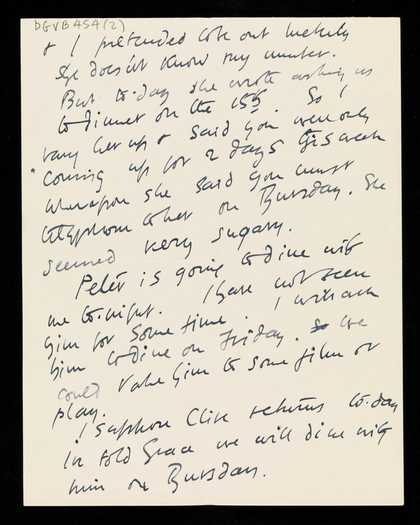 DGVB454(2)
& I pretended to be out luckily
She doesn't know my number.
But to-day she wrote asking us
to dinner on the 15th. So I
rang her up & said you were only
coming up for 2 days this week
whereupon she said you must
telephone to her on Thursday. She
seemed very sugary.
Peter is going to dine with
me to-night. I have not seen
him for some time. I will ask
him to dine on Friday. So we
could take him to some film or
play.
I suppose Clive returns to-day
Grace we will dine with
him on Thursday.